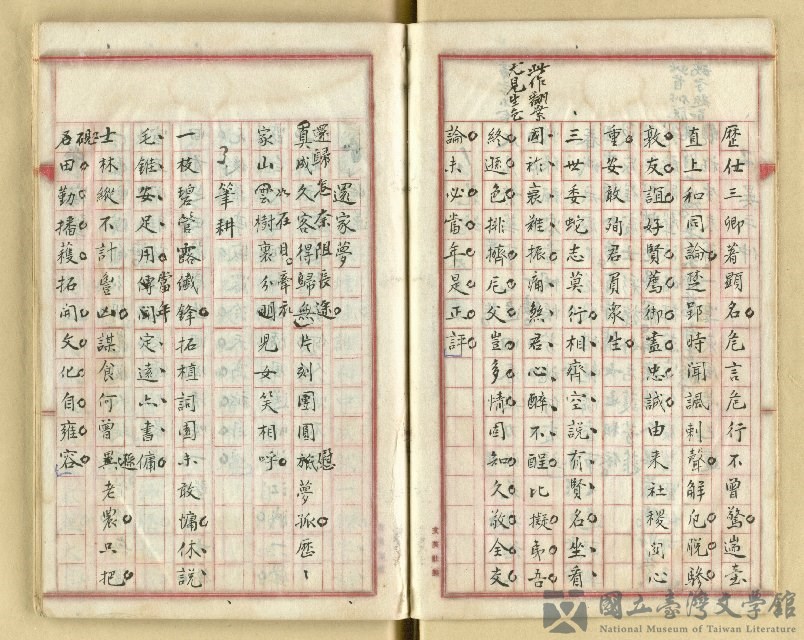 歷仕三卿著顯名危言危行不曾驚遄臺
直上和同論楚郢時聞諷刺聲解厄脫驂
敦友誼好賢薦御盡忠誠由來社稷關心
重安敢殉君負眾生
三世委蛇志莫行相齊空說有賢名坐看
國祚衰難振痛煞君心醉不醒比擬弟吾
終遜色排擠尼父豈多情固知久敬全交
論未必當年是正評
此作翻案
尤見生色
還家夢
還歸怎奈阻長途
真成久客得歸無片刻團圓慰夢孤歷
家山雲樹裏分明兒女笑相呼
如在目牽衣
筆耕
一枝碧管露纖鋒拓植詞園未敢慵休說
毛錐安足用當年定遠亦書傭
士林縱不計豐凶謀食何曾異老農只把
遜
硯
石田勤播穫拓開文化自雍容
國立臺灣文學館
National Museum of Taiwan Literature